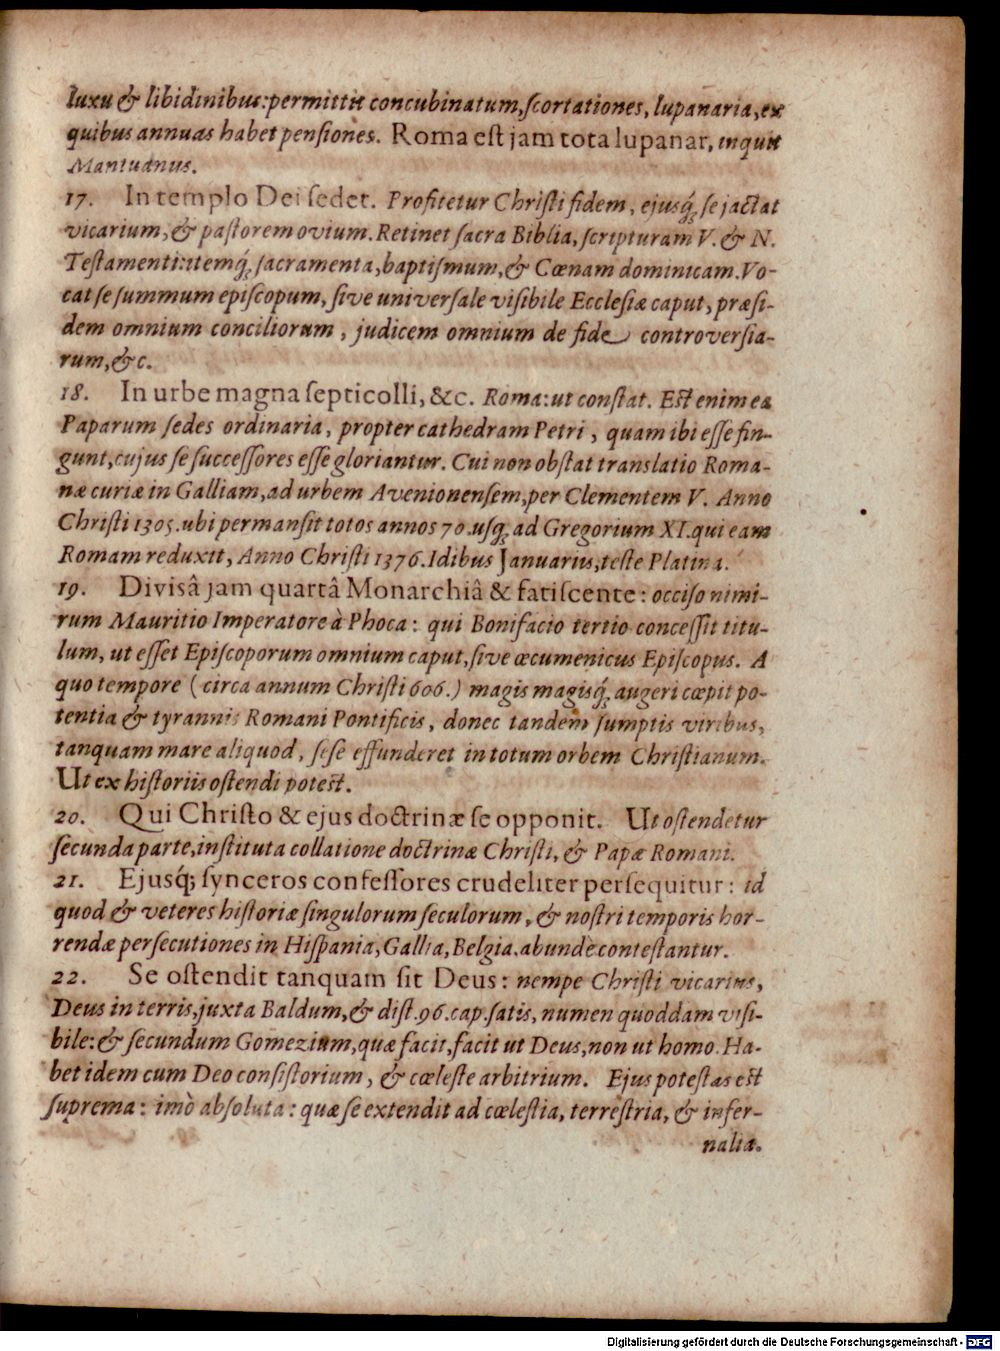 luxu & libidinibus: permittit concubinatum, scortationes, lupanaria, ex
quibus annuas habet pensiones. Roma est jam tota lupanar, inquit
Mantuanus.
17. In templo Dei sedet. Profitetur Christi fidem, ejusq́; se jactat
vicarium, & pastorem ovium. Retinet sacra Biblia, scripturam V. & N.
Testamenti: itemq́; sacramenta, baptismum, & Cœnam dominicam. Vo-
cat se summum episcopum, sive universale visibile Ecclesiæ caput, præsi-
dem omnium conciliorum, judicem omnium de fide controversia-
rum, &c.
18. In urbe magna septicolli, &c. Roma: ut constat. Est enim ea
Paparum sedes ordinaria, propter cathedram Petri, quam ibi esse fin-
gunt, cujus se successores esse gloriantur. Cui non obstat translatio Roma-
næ curiæ in Galliam, ad urbem Avenionensem, per Clementem V. Anno
Christi 1305. ubi permansit totos annos 70. usq́; ad Gregorium XI. qui eam
Romam reduxit, Anno Christi 1376. Idibus Januarius, teste Platina.
19. Divisâ jam quartâ Monarchiâ & fatiscente: occiso nimi-
rum Mauritio Imperatore à Phoca: qui Bonifacio tertio concessit titu-
lum, ut esset Episcoporum omnium caput, sive œcumenicus Episcopus. A
quo tempore (circa annum Christi 606.) magis magisq́; augeri cœpit po-
tentia & tyrannis Romani Pontificis, donec tandem sumptis viribus,
tanquam mare aliquod, sese effunderet in totum orbem Christianum.
Ut ex historiis ostendi potest.
20. Qui Christo & ejus doctrinæ se opponit. Ut ostendetur
secunda parte, instituta collatione doctrinæ Christi, & Papæ Romani.
21. Ejusq́; synceros confessores crudeliter persequitur: id
quod & veteres historiæ singulorum seculorum, & nostri temporis hor-
rendæ persecutiones in Hispania, Gallia, Belgia, abunde contestantur.
22. Se ostendit tanquam sit Deus: nempe Christi vicarius,
Deus in terris, juxta Baldum, & dist. 96. cap. satis, numen quoddam visi-
bile: & secundum Gomezium, quæ facit, facit ut Deus, non ut homo. Ha-
bet idem cum Deo consistorium, & cœleste arbitrium. Ejus potestas est
suprema: imò absoluta: quæ se extendit ad cœlestia, terrestria, & infer-
nalia.
Digitalisierung gefördert durch die Deutsche Forschungsgemeinschaft - DFG